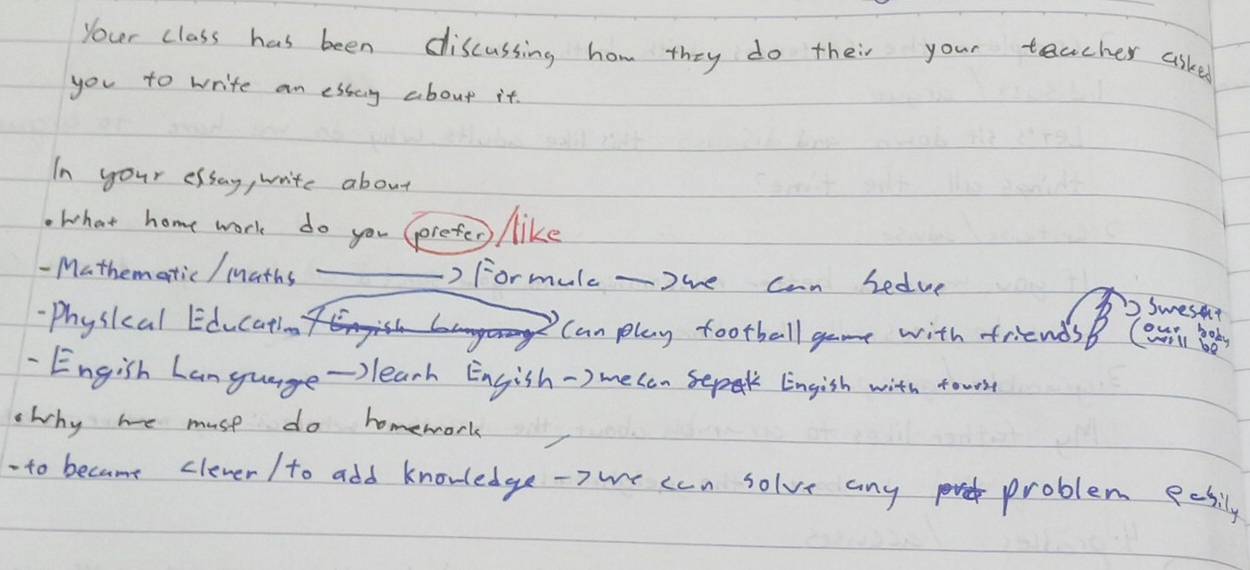 Your class has been discussing how they do their your teacher asked
you to write an essay about it.
In your essay, write about
• What home work do you prefer /like
- Mathematic / maths → Formula → we can Sedue
- Physical Education → can play football game with friends → Sweseat
(our body
will be
- Engish Language → learn Engish → we can sepak Engish with tourst
• Why we must do homework
- to became clever / to add knowledge → we can solve any problem easily